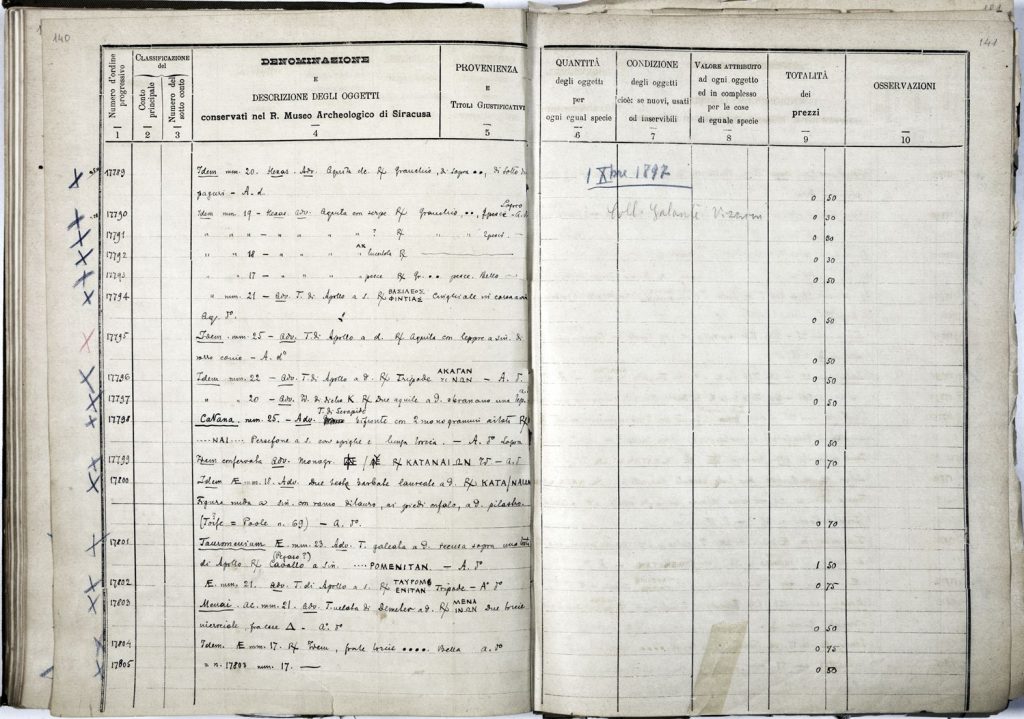 140
Numero d'ordine progressivo
1
CLASSIFICAZIONE del
Conto principale
2
Numero del sotto conto
3
DENOMINAZIONE
E
DESCRIZIONE DEGLI OGGETTI
conservati nel R. Museo Archeologico di Siracusa
4
PROVENIENZA
E
TITOLI GIUSTIFICATIVI
5
17789 Idem mm. 20. Hexas. Adv. Aquila de. R/ Granchio, di sopra •• , di sotto
paguri - A. d.
17790 Idem mm. 19 - Hexas. adv. Aquila con serpe R/ Granchio .., pesce
17791 " " " - " " " ? R/ " " 2 pesci. —
17792 " " 18 - " " " AK lucertola R/ —
17793 " " 17 - " " " pesce R/ Gr. •• pesce. Bello —
17794 " mm. 21 - adv. T. di Apollo a s. R/ ΒΑΣΙΛΕΟΣ ΦΙΝΤΙΑΣ Cinghiale
17795 Idem. mm. 25 - adv. T. di Apollo a d. R/ Aquila con leppre a sin. di
- A. dº
17796 Idem mm. 22 - adv. T. di Apollo a d. R/ Tripode ΑΚΑΓΑΝ ΤΙΝΩΝ - A. d.
17797 " " 20 - adv. R/ Due aquile a d. sbranano una lep.
17798 Catana. mm. 25. - Adv. T. di Serapide bifronte con 2 monogrammi ai lati R/
....NAI.... Persefone a s. con spighe e lunga torcia. - A. dº Sopra
17799 Idem conservata adv. Monogr. R/ ΚΑΤΑΝΑΙΩΝ - a. d
17800 Idem Æ mm. 18. Adv. Due teste barbate laureate a d. R/ ΚΑΤΑΝΑΙΩΝ
Figura nuda a sin. con ramo di lauro, ai piedi onfalo, a d. pilastro.
(Torfe = Poole n. 69) - A. dº.
17801 Tauromenium Æ mm. 23. Adv. T. galeata a d. recusa sopra una testa
di Apollo R/ Cavallo (Pegaso?) a sin. ....POMENITAN. - A. dº
17802 Æ. mm. 21. adv. T. di Apollo a s. R/ ΤΑΥΡΟΜΕ ΕΝΙΤΑΝ Tripode - Aº dº
17803 Menai. Æ. mm. 21. adv. T. velata di Demeter a d. R/ ΜΕΝΑ ΙΝΩΝ Due torcie
incrociate, fra esse Δ - aº. dº
17804 Idem. Æ mm. 17. R/ Idem, fra le torcie •••• Bella a. dº
17805 " n. 17803 mm. 17. —
141
QUANTITÀ
degli oggetti
per
ogni egual specie
6
CONDIZIONE
degli oggetti
cioè: se nuovi, usati
od inservibili
7
VALORE ATTRIBUITO
ad ogni oggetto
ed in complesso
per le cose
di eguale specie
8
TOTALITÀ
dei
prezzi
9
OSSERVAZIONI
10
1 Xbre 1897
Coll. Galante
0 50
0 30
0 80
0 30
0 50
0 50
0 50
0 50
0 50
0 50
0 70
0 70
1 50
0 75
0 50
0 75
0 50